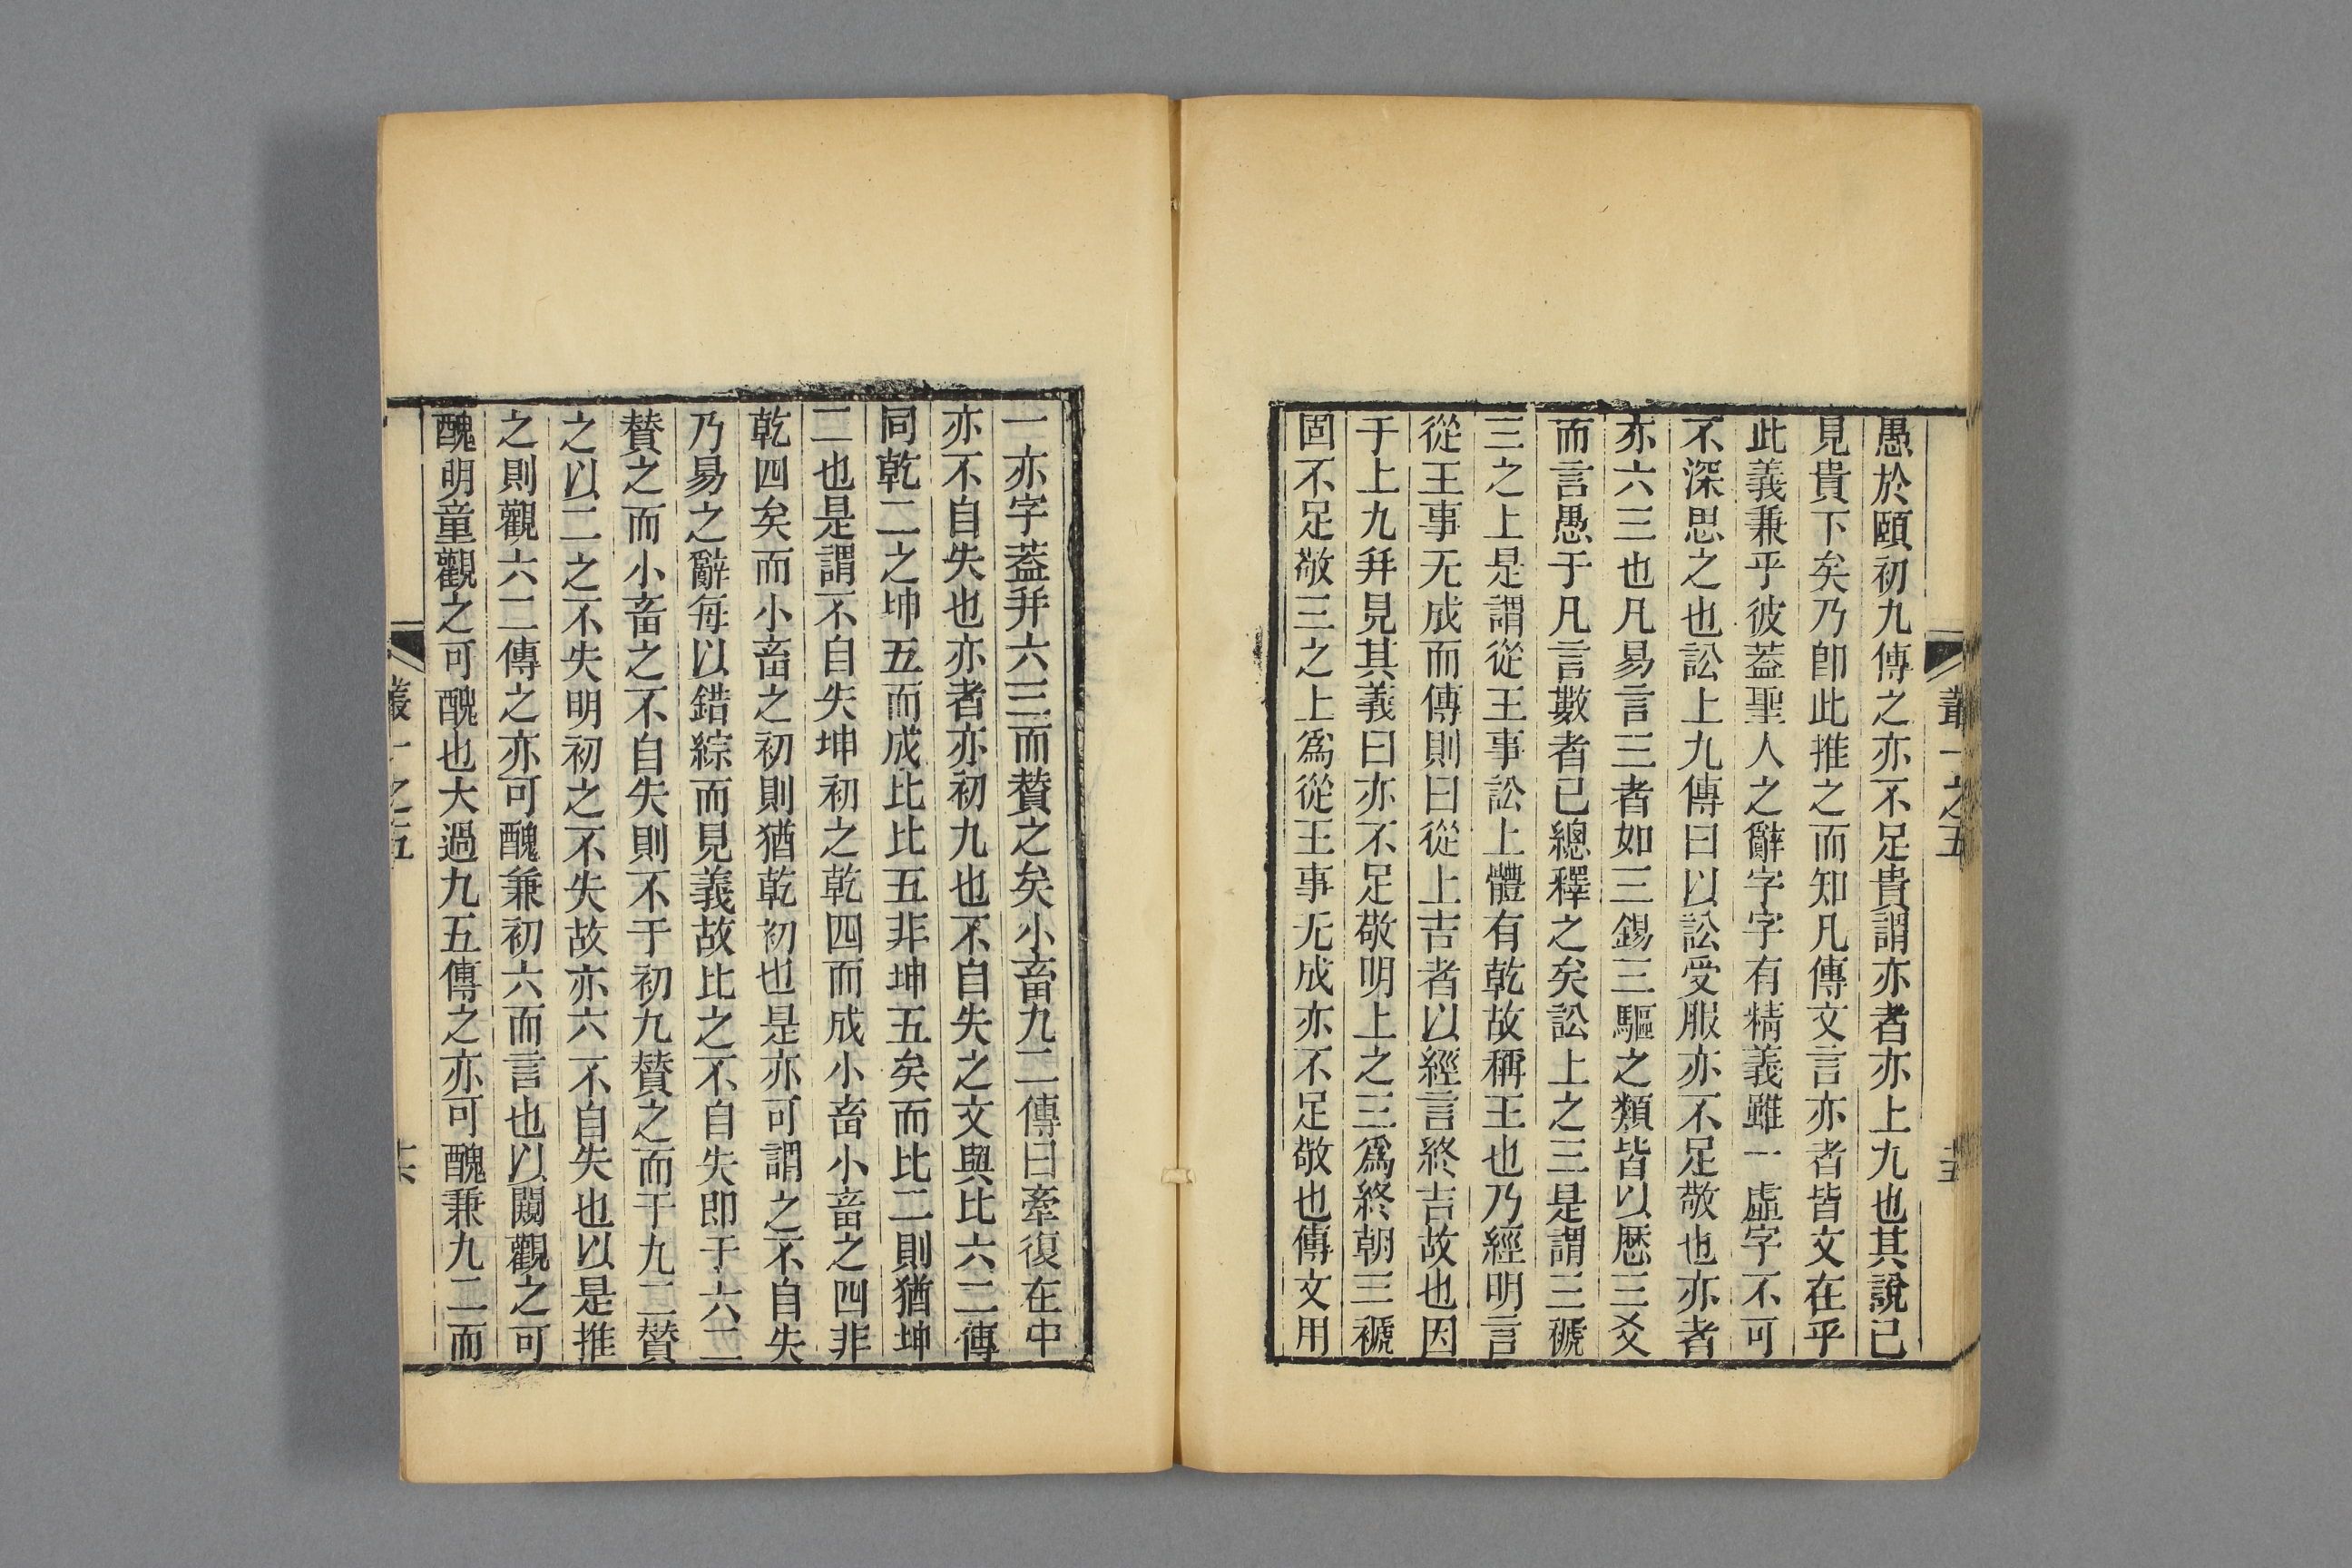 叢一之五
愚於頤初九傳之亦不足貴謂亦者亦上九也其說已
見貴下矣乃卽此推之而知凡傳文言亦者皆文在乎
此義兼乎彼葢聖人之辭字字有精義雖一虛字不可
不深思之也訟上九傳曰以訟受服亦不足敬也亦者
亦六三也凡易言三者如三錫三驅之類皆以厯三爻
而言愚于凡言數者已總釋之矣訟上之三是謂三褫
三之上是謂從王事訟上體有乾故稱王也乃經明言
從王事无成而傳則曰從上吉者以經言終吉故也因
于上九幷見其義曰亦不足敬明上之三爲終朝三褫
固不足敬三之上爲從王事无成亦不足敬也傳文用
一亦字葢幷六三而贊之矣小畜九二傳曰牽復在中
亦不自失也亦者亦初九也不自失之文與比六二傳
同乾二之坤五而成比比五非坤五矣而比二則猶坤
二也是謂不自失坤初之乾四而成小畜小畜之四非
乾四矣而小畜之初則猶乾初也是亦可謂之不自失
乃易之辭每以錯綜而見義故比之不自失卽于六二
贊之而小畜之不自失則不于初九贊之而于九二贊
之以二之不失明初之不失故亦六不自失也以是推
之則觀六二傳之亦可醜兼初六而言也以闚觀之可
醜明童觀之可醜也大過九五傳之亦可醜兼九二而
叢一之五